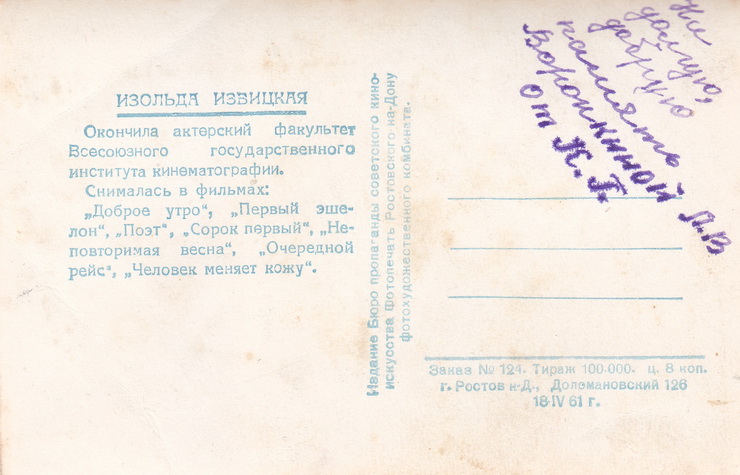 ИЗОЛЬДА ИЗВИЦКАЯ
Окончила актерский факультет
Всесоюзного государственного
института кинематографии.
Снималась в фильмах:
„Доброе утро“, „Первый эше-
лон“, „Поэт“, „Сорок первый“, „Не-
повторимая весна“, „Очередной
рейс“, „Человек меняет кожу“.
Издание Бюро пропаганды советского кино-
искусства Фотопечать Ростовского-на-Дону
фотохудожественного комбината.
На
долгую,
добрую
память
Воронкиной Л.В
от К.Г.
Заказ № 124. Тираж 100.000. ц. 8 коп.
г. Ростов н-Д., Доломановский 126
18-IV 61 г.